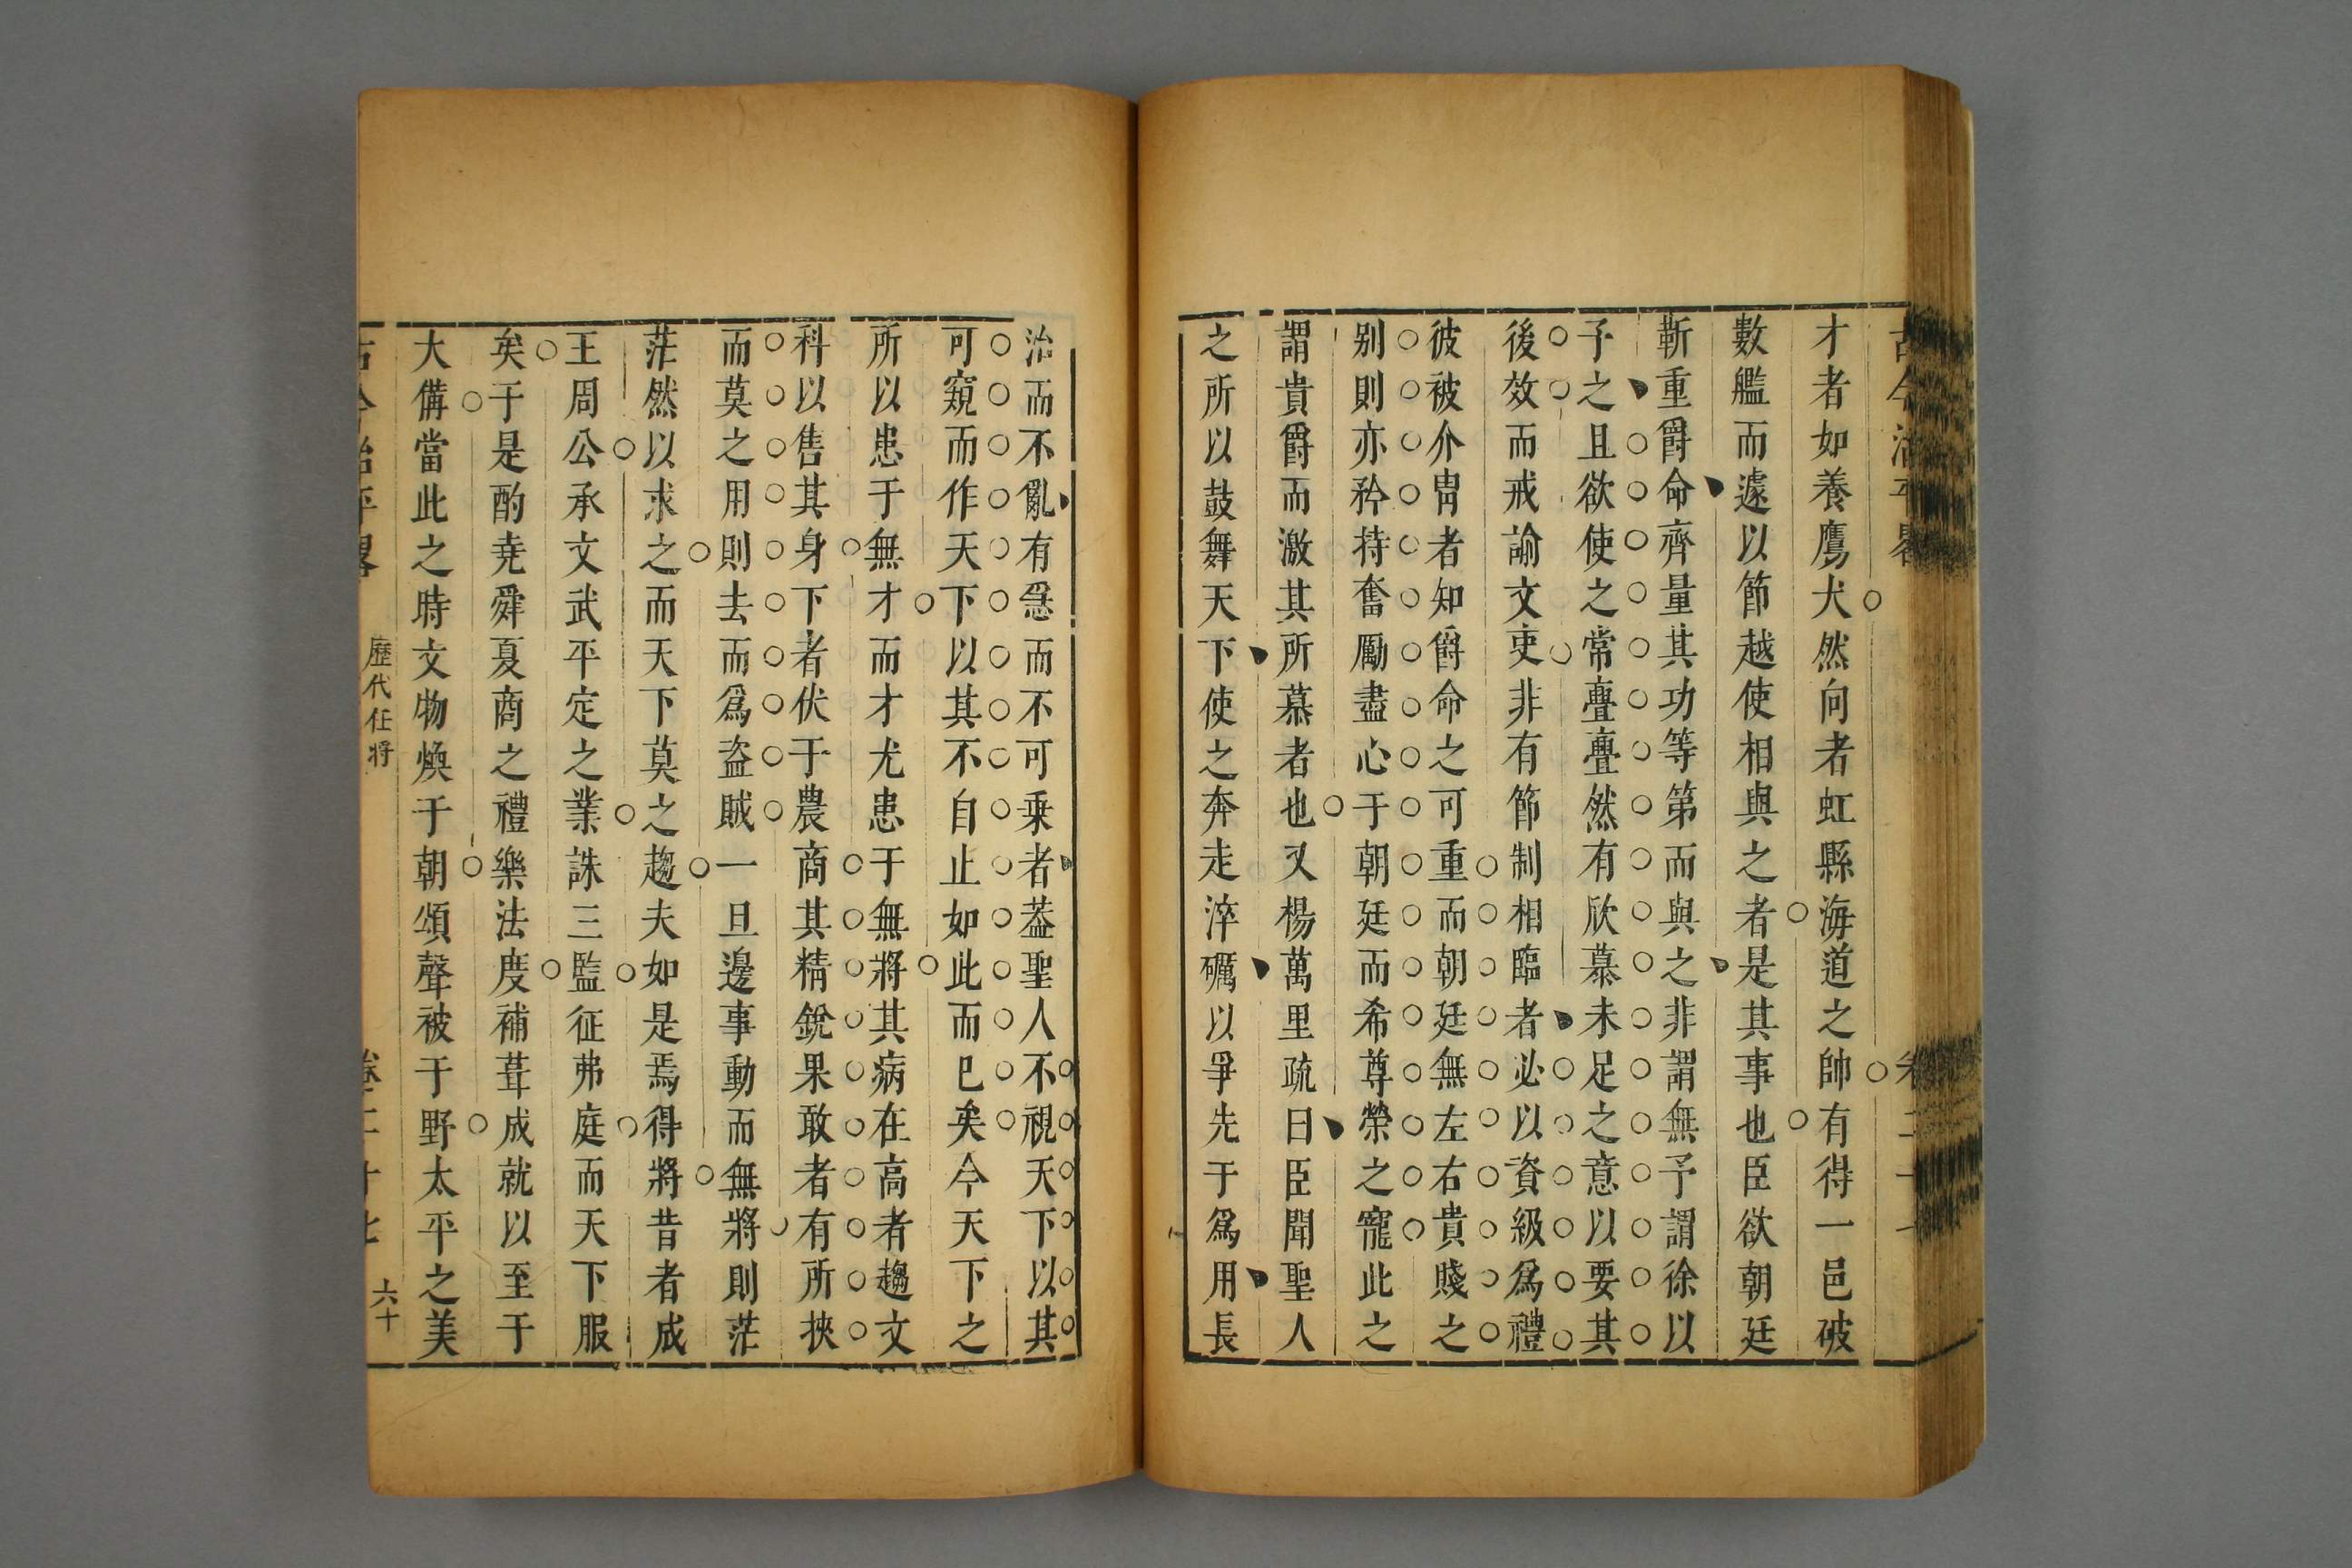 古今治平畧
才者如養鷹犬然向者虹縣海道之帥有得一邑破
數艦而遽以節越使相與之者是其事也臣欲朝廷
靳重爵命齊量其功等第而與之非謂無予謂徐以
予之且欲使之常亹亹然有欣慕未足之意以要其
後效而戒諭文吏非有節制相臨者必以資級爲禮
彼被介冑者知爵命之可重而朝廷無左右貴賤之
别則亦矜持奮勵盡心于朝廷而希尊榮之寵此之
謂貴爵而激其所慕者也又楊萬里疏曰臣聞聖人
之所以鼓舞天下使之奔走淬礪以爭先于爲用長
治而不亂有急而不可乗者葢聖人不視天下以其
可窺而作天下以其不自止如此而已矣今天下之
所以患于無才而才尤患于無將其病在高者趨文
科以售其身下者伏于農商其精銳果敢者有所挾
而莫之用則去而爲盗賊一旦邊事動而無將則茫
茫然以求之而天下莫之趨夫如是焉得將昔者成
王周公承文武平定之業誅三監征弗庭而天下服
矣于是酌尭舜夏商之禮樂法度補葺成就以至于
大備當此之時文物煥于朝頌聲被于野太平之美
古今治平畧 歷代任將 卷二十七 六十